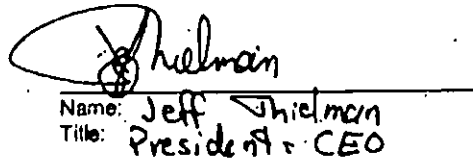 Thielman
Name: Jeff Thielman
Title: President & CEO